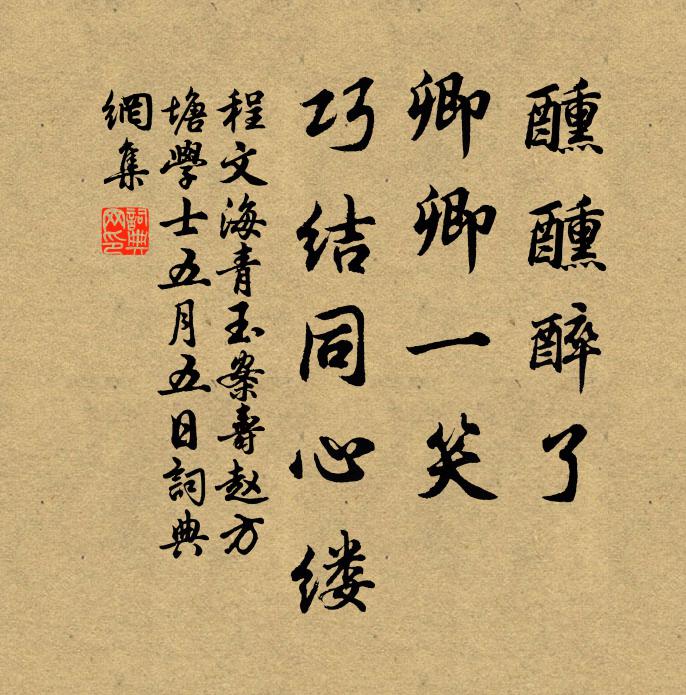 醺醺醉了
卿卿一笑
巧结同心缕
程文海青玉案寿赵方
塘學士五月五日詞典
網集
詞典网印